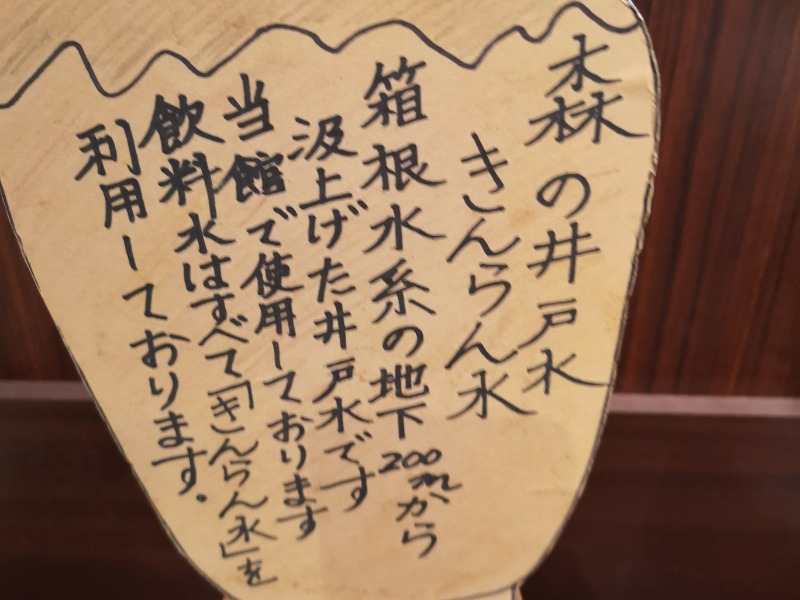 森の井戸水
きんらん水
箱根水系の地下200mから
汲上げた井戸水です
当館で使用しております
飲料水はすべて「きんらん水」を
利用しております。